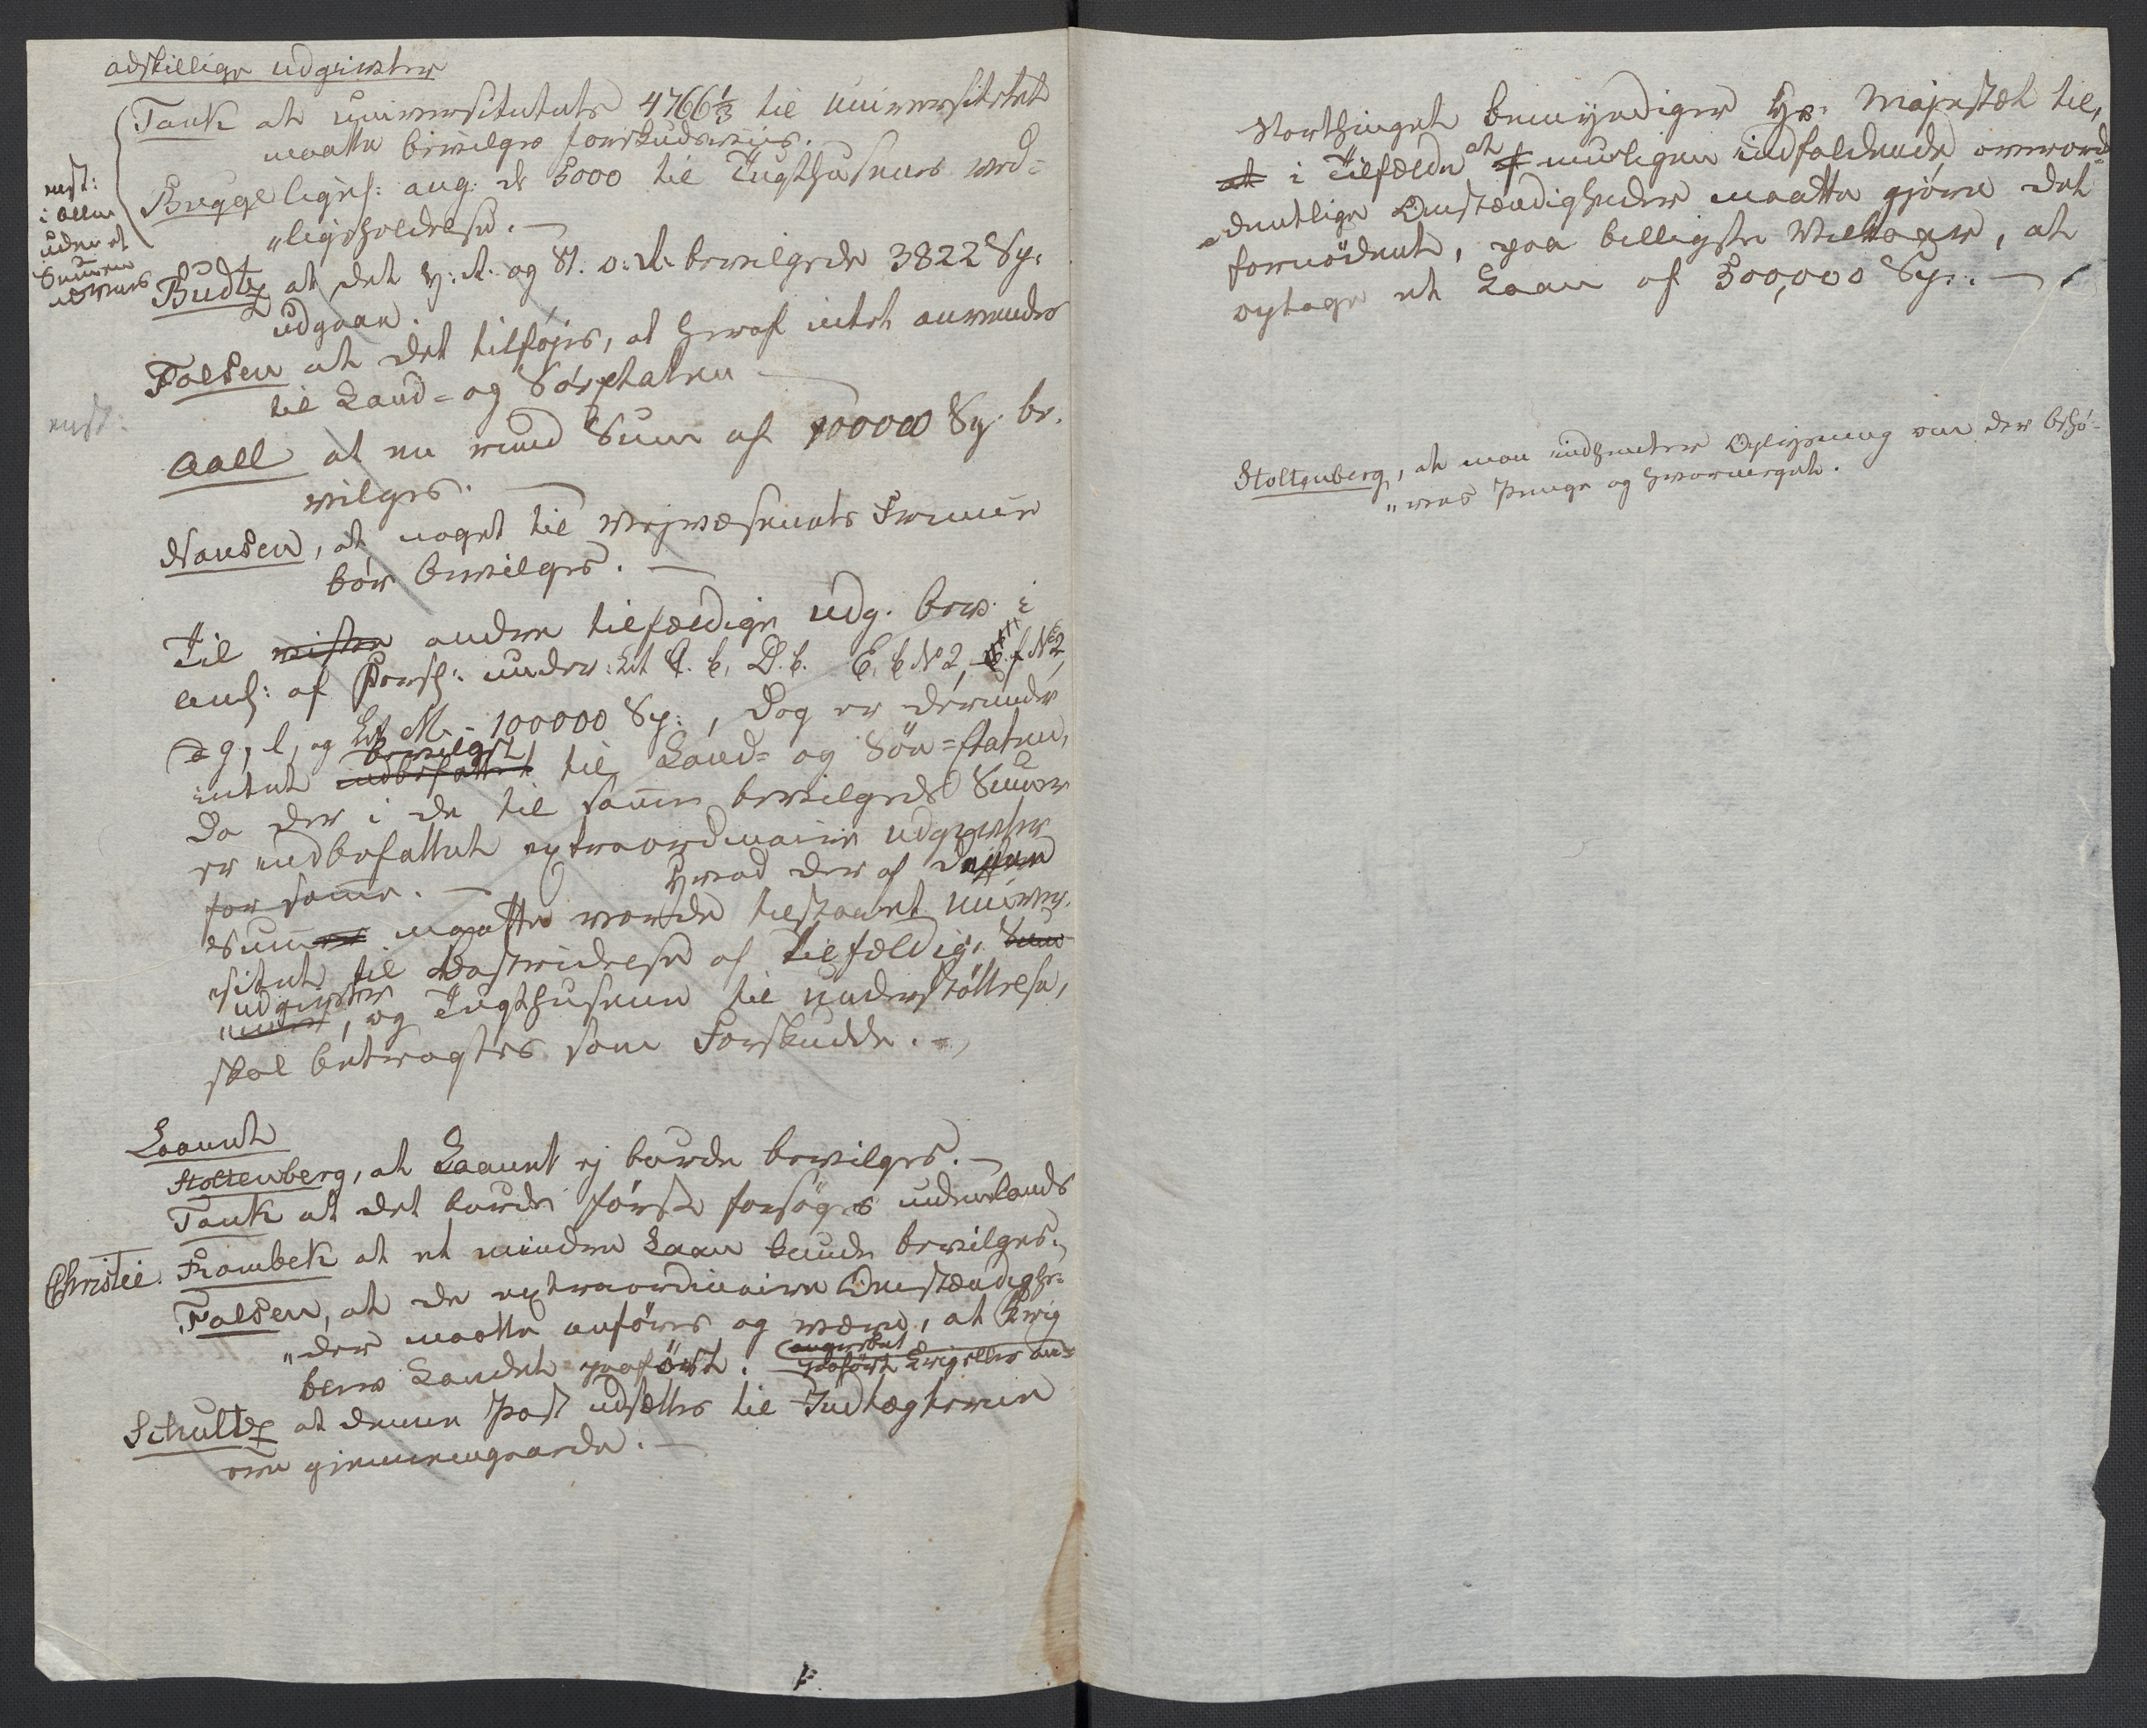 adskillige udgivter
Tank at Universitetets 4766⅓ til Universitetet
maatte bevilges forskudsviis.
Brygge ligeh: ang. de 5000 til Tugthusenes ved=
"ligeholdelse. —
enst:
i alle
uden at
Summen
udvises
Budtz at det H: A: og St. o: A: bevilgede 3822 Sp:
udgaae.
Falsen at det tilføjes, at heraf intet anvendes
til Land= og Søe etaten —
enst:
Aall at en rund Sum af 100000 Sp. be.
vilges. —
Nansen, at noget til Vejvæsenets Fremme
bør bevilges. —
Til visse andre tilfældige udg. bev. i
Anl: af Forsl: under: Lit C. b, D. b. E. b No 2, f No 2,
g, l, og Lit M. - 100000 Sp:, dog er derunder
bevilget
intet indbefattet til Land= og Søe=Etaten,
da der i de til samme bevilgede Summer
er indbefattet extraordinaire udgivter
for samme. — Hvad der af denne
Summen maatte vorde tilstaaet Univer.
sitetet til Bestridelse af tilfældige Sum
udgivter
"mer, og Tugthusene til Understøttelse,
skal betragtes som Forskudde. —
Laanet
Stoltenberg, at Laanet ej burde bevilges. —
Tank at det burde først forsøges indenlands
Christie. Frambek at et mindre Laan kunde bevilges.
Falsen, at de extraordinaire Omstændighe=
"der maatte anføres og være, at Krig
blev Landet paaført. angrebet paaført Krig eller an=
Schultz at denne Post udsættes til Indtægterne
ere gjennemgaaede. —
Storthinget bemyndiger Hs: Majestæt til,
at i Tilfælde at mueligen indfaldende overord=
dentlige Omstændigheder maatte gjøre det
fornødent, paa billigste Vilkaar, at
optage et Laan af 300,000 Sp:. —
Stoltenberg, at man indhenter Oplysning om der behø-
"ves Penge og hvormeget.